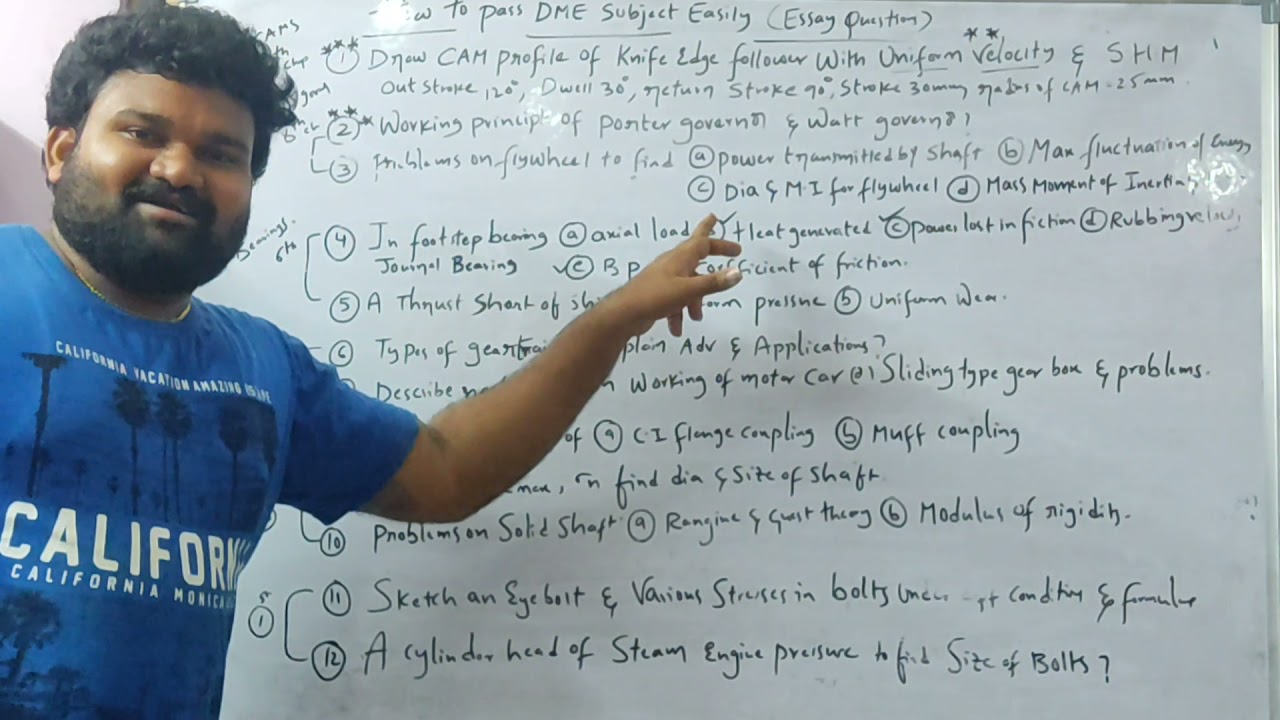 to pass DME Subject Easily (Essay Question)
*** ① Draw CAM profile of Knife Edge follower With Uniform Velocity & SHM **
Out stroke 120°, Dwell 30°, return stroke 90°, Stroke 30mm, radius of CAM - 25mm
*** ② Working principle of porter governor & Watt governor?
③ Problems on flywheel to find ⓐ power transmitted by shaft ⓑ Max fluctuation of Energy
ⓒ Dia & M.I for flywheel ⓓ Mass Moment of Inertia,
Bearings. 6th
④ In foot step bearing ⓐ axial load Heat generated ⓒ power lost in friction ⓓ Rubbing
Journal Bearing ⓔ B.P coefficient of friction.
⑤ A Thrust Shaft of pressure ⓑ Uniform Wear.
⑥ Types of Adv & Applications?
Describe Working of motor car Sliding type gear box & problems.
of ⓐ C.I flange coupling ⓑ Muff coupling
find dia & size of shaft.
⑩ Problems on Solid Shaft ⓐ Rangine & Guest theory ⓑ Modulus of rigidity.
① ⑪ Sketch an Eye bolt & Various Stresses in bolts condition & formulae
⑫ A cylinder head of Steam Engine pressure to find Size of Bolts?
CALIFORNIA VACATION AMAZING
CALIFORN
CALIFORNIA MONICA